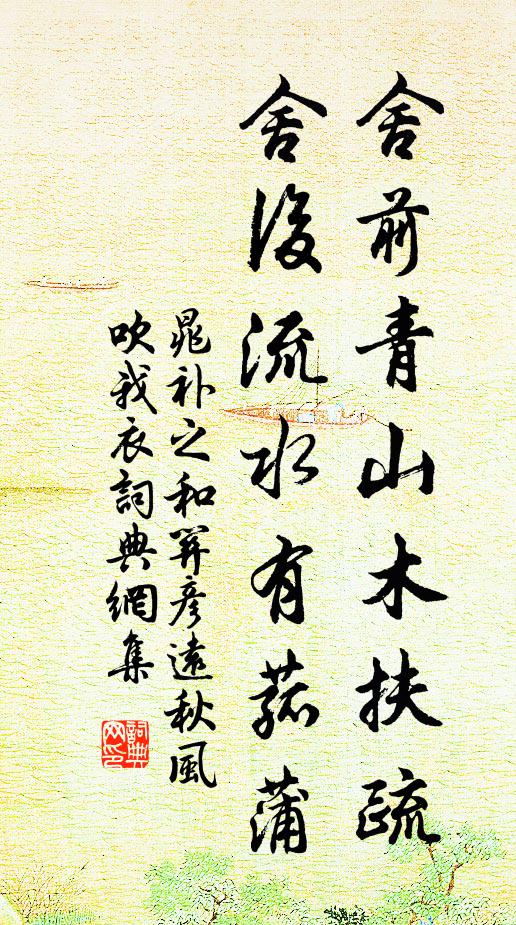 舍前青山木扶疏
舍後流水有菰蒲
晁补之和關彥遠秋風
吹我衣詞典網集
詞典
网印